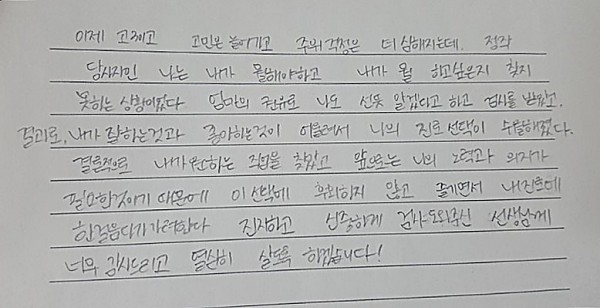 이제 고3이고 고민은 늘어가고 주위 걱정은 더 심해지는데. 정작
당사자인 나는 내가 뭘해야하고 내가 뭘 하고싶은지 찾지
못하는 상황이었다 엄마의 권유로 나도 선뜻 알겠다고 하고 검사를 받았고,
결과로, 내가 잘하는것과 좋아하는것이 어울려서 나의 진로선택이 수월해졌다.
결론적으로 내가 원하는 직업을 찾았고 앞으로는 나의 노력과 의지가
필요한것이기 때문에 이 선택에 후회하지 않고 즐기면서 내진로에
한걸음 다가가려한다 진지하고 신중하게 검사도와주신 선생님께
너무 감사드리고 열심히 살도록 하겠습니다!